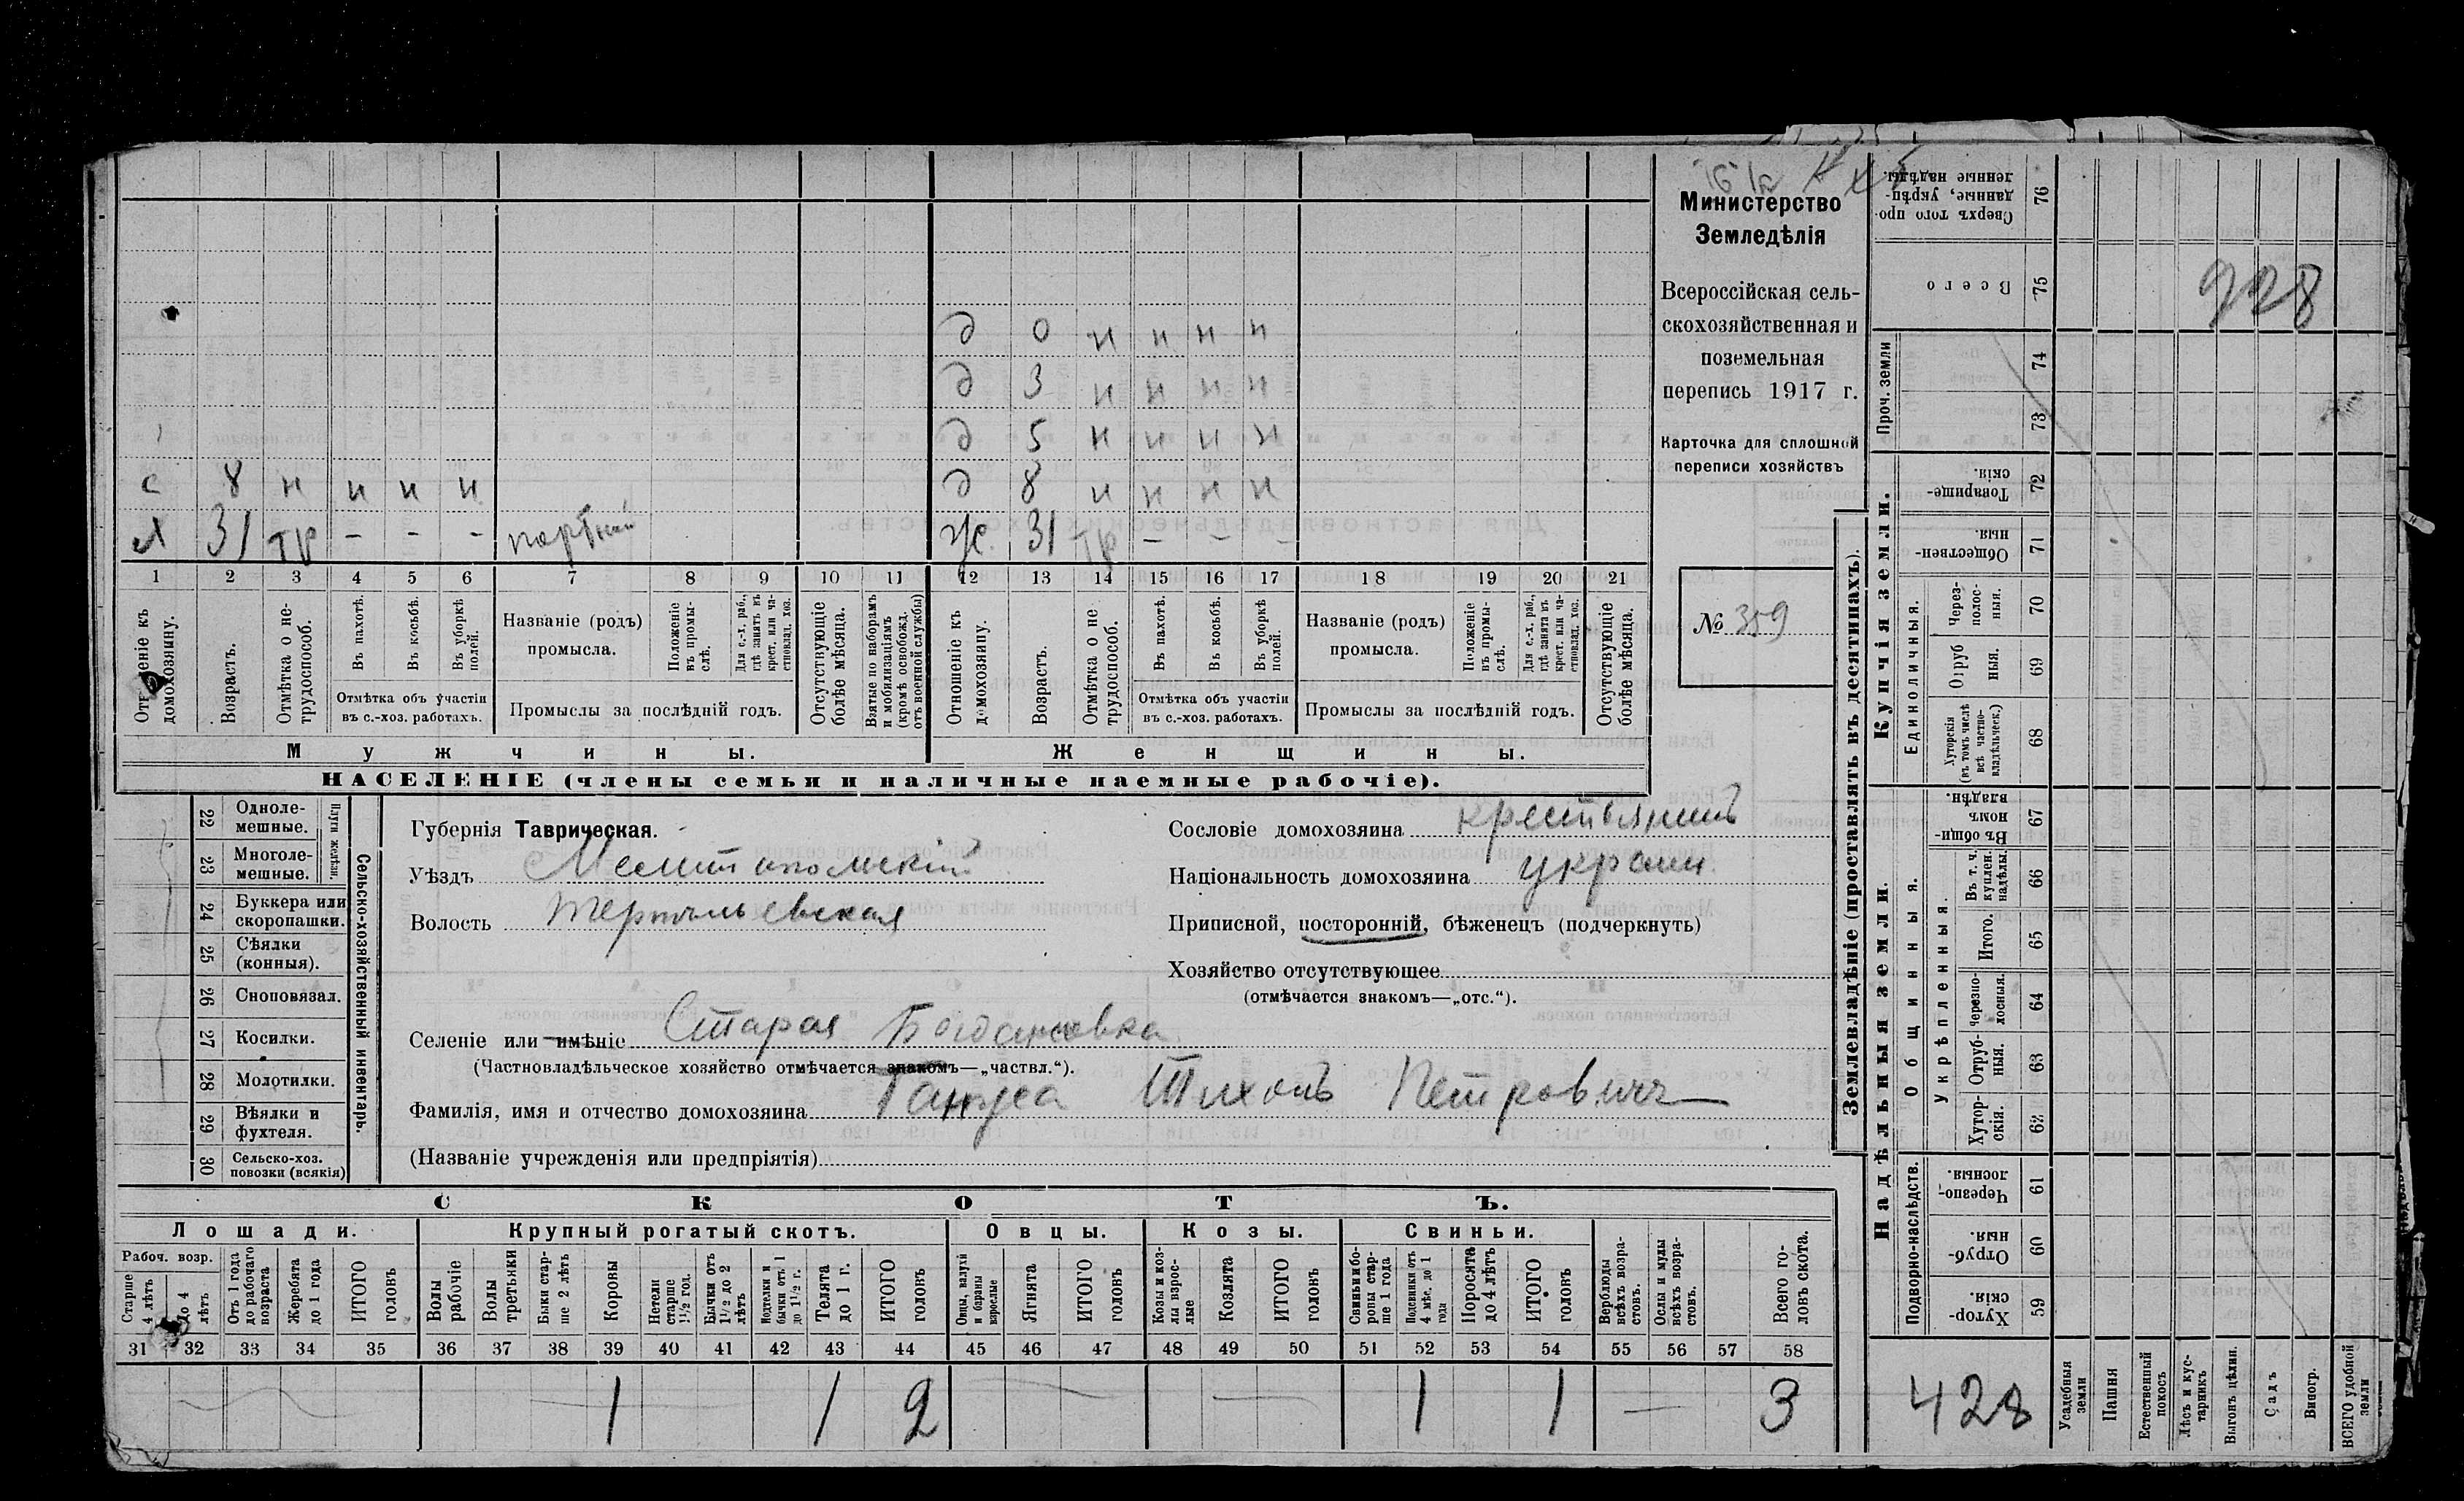 Министерство
Земледѣлія
Всероссійская сель-
скохозяйственная и
поземельная
перепись 1917 г.
Карточка для сплошной
переписи хозяйствъ
№ 359
д 0 н н н н
д 3 н н н н
д 5 н н н н
с 8 н н н н
д 8 н н н н
31 тр - - - портной
ж 31 тр - - -
1 2 3 4 5 6 7 8 9 10 11 12 13 14 15 16 17 18 19 20 21
Отношеніе къ домохозяину.
Возрастъ.
Отмѣтка о не-трудоспособ.
Въ пахотѣ.
Въ косьбѣ.
Въ уборкѣ полей.
Отмѣтка объ участіи въ с.-хоз. работахъ.
Названіе (родъ) промысла.
Положеніе въ промы-слѣ.
Для с.-х. раб., гдѣ занятъ въ крест. или ча-стновлад. хоз.
Промыслы за послѣдній годъ.
Отсутствующіе болѣе мѣсяца.
Взятые по наборамъ и мобилизаціямъ (кромѣ освобожд. отъ военной службы)
Отношеніе къ домохозяину.
Возрастъ.
Отмѣтка о не трудоспособ.
Въ пахотѣ.
Въ косьбѣ.
Въ уборкѣ полей.
Отмѣтка объ участіи въ с.-хоз. работахъ.
Названіе (родъ) промысла.
Положеніе въ промы-слѣ.
Для с.-х. раб., гдѣ занята въ крест. или ча-стновлад. хоз.
Промыслы за послѣдній годъ.
Отсутствующіе болѣе мѣсяца.
Мужчины.
Женщины.
НАСЕЛЕНІЕ (члены семьи и наличные наемные рабочіе).
22 Одноле-мешные.
23 Многоле-мешные.
Плуги желѣзн.
24 Буккера или скоропашки.
25 Сѣялки (конныя).
26 Сноповязал.
27 Косилки.
28 Молотилки.
29 Вѣялки и фухтеля.
30 Сельско-хоз. повозки (всякія)
Сельско-хозяйственный инвентарь.
Губернія Таврическая.
Уѣздъ Мелитопольскій
Волость Терпѣльевская
Сословіе домохозяина крестьянинъ
Національность домохозяина украин.
Приписной, посторонній, бѣженецъ (подчеркнуть)
Хозяйство отсутствующее
(отмѣчается знакомъ—„отс.“).
Селеніе или имѣніе Старая Богдановка
(Частновладѣльческое хозяйство отмѣчается знакомъ—„частвл.“).
Фамилія, имя и отчество домохозяина Тихонъ Петровичъ
(Названіе учрежденія или предпріятія)
СКОТЪ.
Лошади. Крупный рогатый скотъ. Овцы. Козы. Свиньи.
Рабоч. возр.
Старше 4 лѣтъ
До 4 лѣтъ
Отъ 1 года до рабочаго возраста
Жеребята до 1 года
ИТОГО головъ
Волы рабочіе
Волы третьяки
Быки стар-ше 2 лѣтъ
Коровы
Нетели старше 1½ год.
Бычки отъ 1½ до 2 лѣтъ
Подтелки и бычки отъ 1 до 1½ г.
Телята до 1 г.
ИТОГО головъ
Овцы, валухи и бараны взрослые
Ягнята
ИТОГО головъ
Козы и коз-лы взрос-лые
Козлята
ИТОГО головъ
Свиньи и бо-ровы стар-ше 1 года
Подсвинки отъ 4 мѣс. до 1 года
Поросята до 4 лѣтъ
ИТОГО головъ
Верблюды всѣхъ возра-стовъ.
Ослы и мулы всѣхъ возра-стовъ.
Всего го-ловъ скота.
31 32 33 34 35 36 37 38 39 40 41 42 43 44 45 46 47 48 49 50 51 52 53 54 55 56 57 58
1 1 2 1 1 — 3
Землевладѣніе (проставлять въ десятинахъ).
Купчія земли.
Надѣльныя земли.
76 Сверхъ того про-данные, укрѣп-ленные надѣлы.
75 Всего
Проч. земли
74
73
72 Товарище-скія.
71 Обществен-ныя.
Единоличныя.
70 Через-полос-ныя.
69 Отруб ныя.
68 Хуторскія (въ томъ числѣ всѣ частно-владѣльческ.)
67 Въ общи-номъ владѣн.
Общинныя.
Укрѣпленныя.
66 Въ т. ч. куплен. надѣлы.
65 Итого.
64 Черезпо-лосныя.
63 Отруб-ныя.
62 Хутор-скія.
Подворно-наслѣдств.
61 Черезпо-лосныя.
60 Отруб-ныя.
59 Хутор-скія.
928
428
Усадебныя земли
Пашня
Естественный покосъ
Лѣсъ и кус-тарникъ
Выгонъ цѣлин.
Садъ
Виногр.
ВСЕГО удобной земли